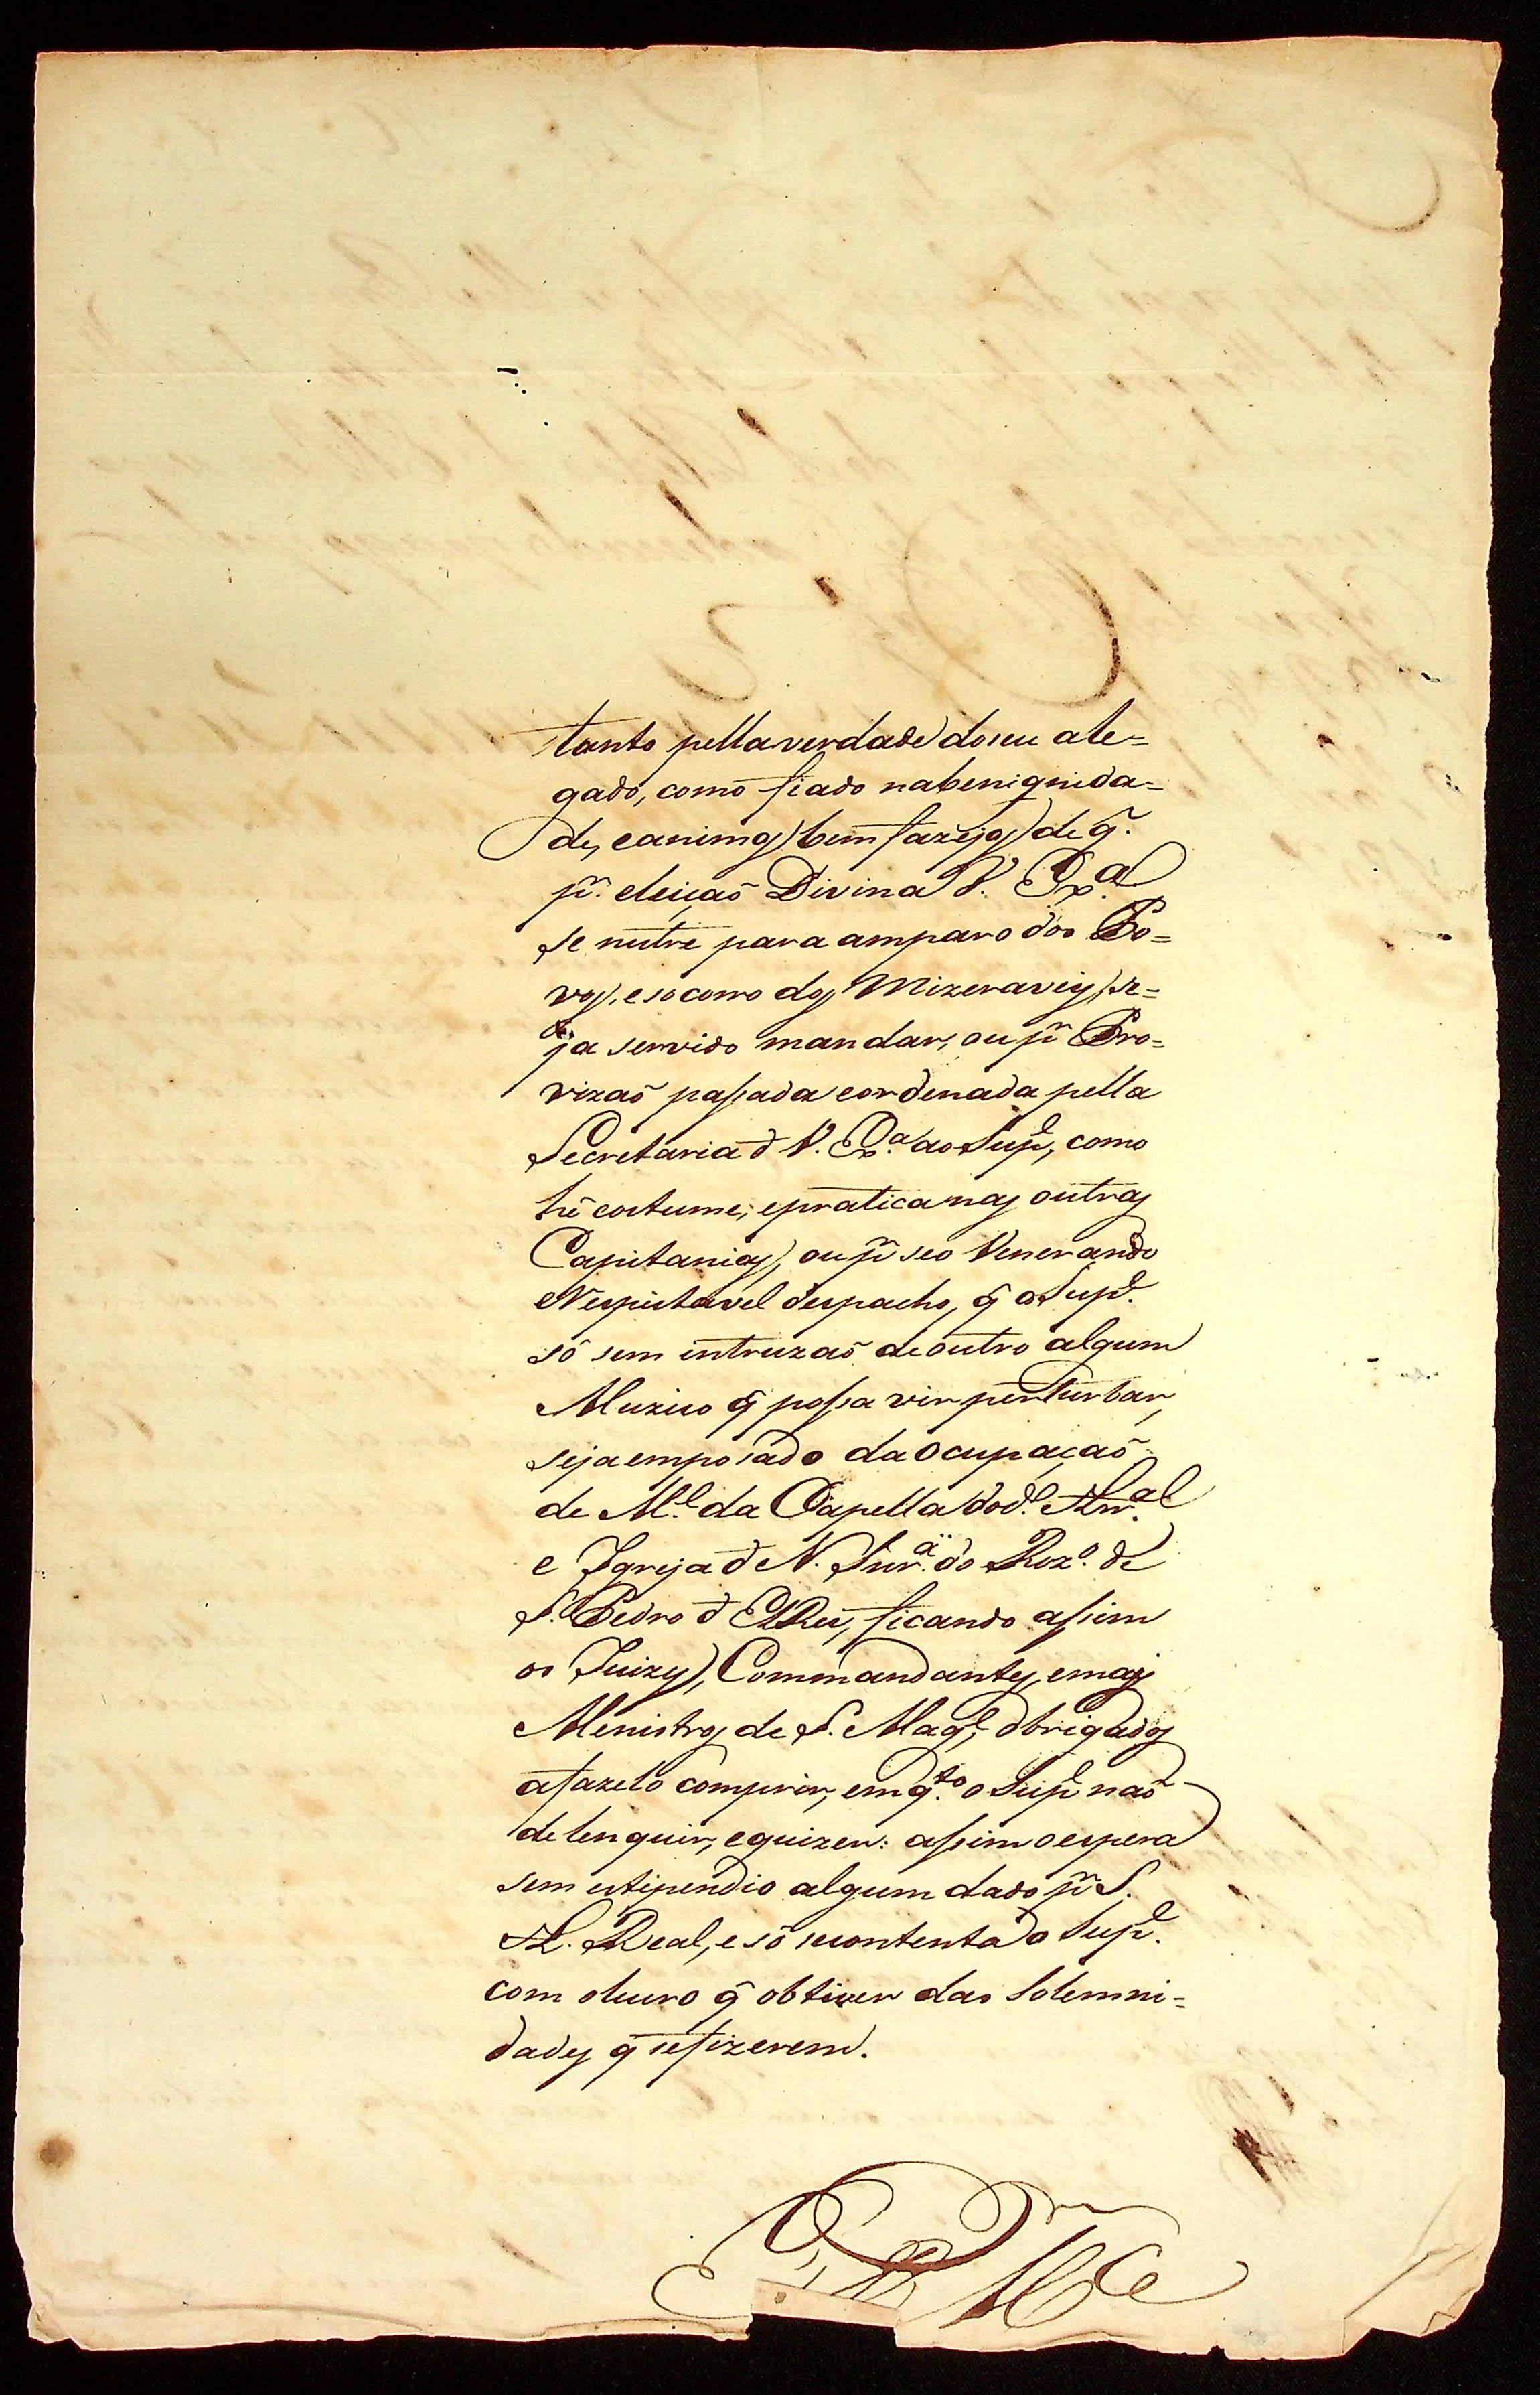 tanto pella verdade do seu ale=
gado, como fiado na benignida=
de, e animos bem fazejos de q̃.
pr̃. eleiçaõ Divina V. Ex.ª
se nutre para amparo dos Po=
vos, e socorro dos Mizeraveis, se=
ja servido mandar, ou pr̃ Pro=
vizaõ passada e ordenada pella
Secretaria d̄ V. Ex.ª ao Sup.e, como
hé costume, e pratica nas outras
Capitanias, ou pr̃ seo Venerando
e Respeitavel despacho, q̃ o Sup.e
só sem intruzaõ de outro algum
Muzico q̃ possa vir perturbar,
seja emposado da Ocupaçaõ
de M.e da Capella do d.º Arr.al
e Igreja d̄ N. Snr.ª do Roz.º de
S. Pedro d̄ ElRei, ficando assim
os Juizes, Commandantes, e mais
Menistros de S. Mag.e, obrigados
a fazelo comprir, emq.to o Sup.e naõ
delenquir, e quizer: assim o espera
sem estipendio algum dado pr̃ S.
A. Real, e só se contenta o Sup.e
com o lucro q̃ obtiver das Solemni=
dades q̃ se fizerem.
E R M.ce